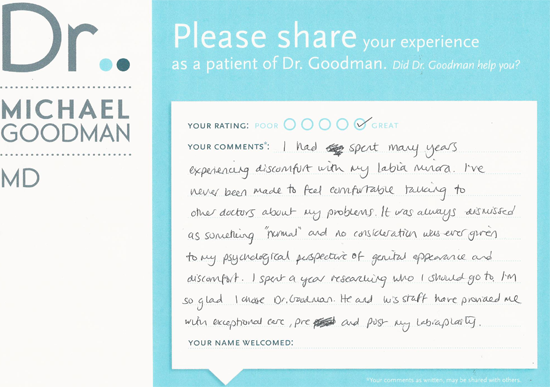 Dr..
MICHAEL
GOODMAN
MD
Please share your experience
as a patient of Dr. Goodman. Did Dr. Goodman help you?
YOUR RATING: POOR GREAT
YOUR COMMENTS*: I had spent many years
experiencing discomfort with my labia minora. I've
never been made to feel comfortable talking to
other doctors about my problems. It was always dismissed
as something "normal" and no consideration was ever given
to my psychological perspective of genital appearance and
discomfort. I spent a year researching who I should go to. I'm
so glad I chose Dr. Goodman. He and his staff have provided me
with exceptional care, pre and post my labiaplasty.
YOUR NAME WELCOMED:
*Your comments as written, may be shared with others.